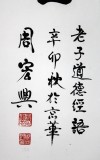 老子道德經語
辛卯秋於京華
周宏興